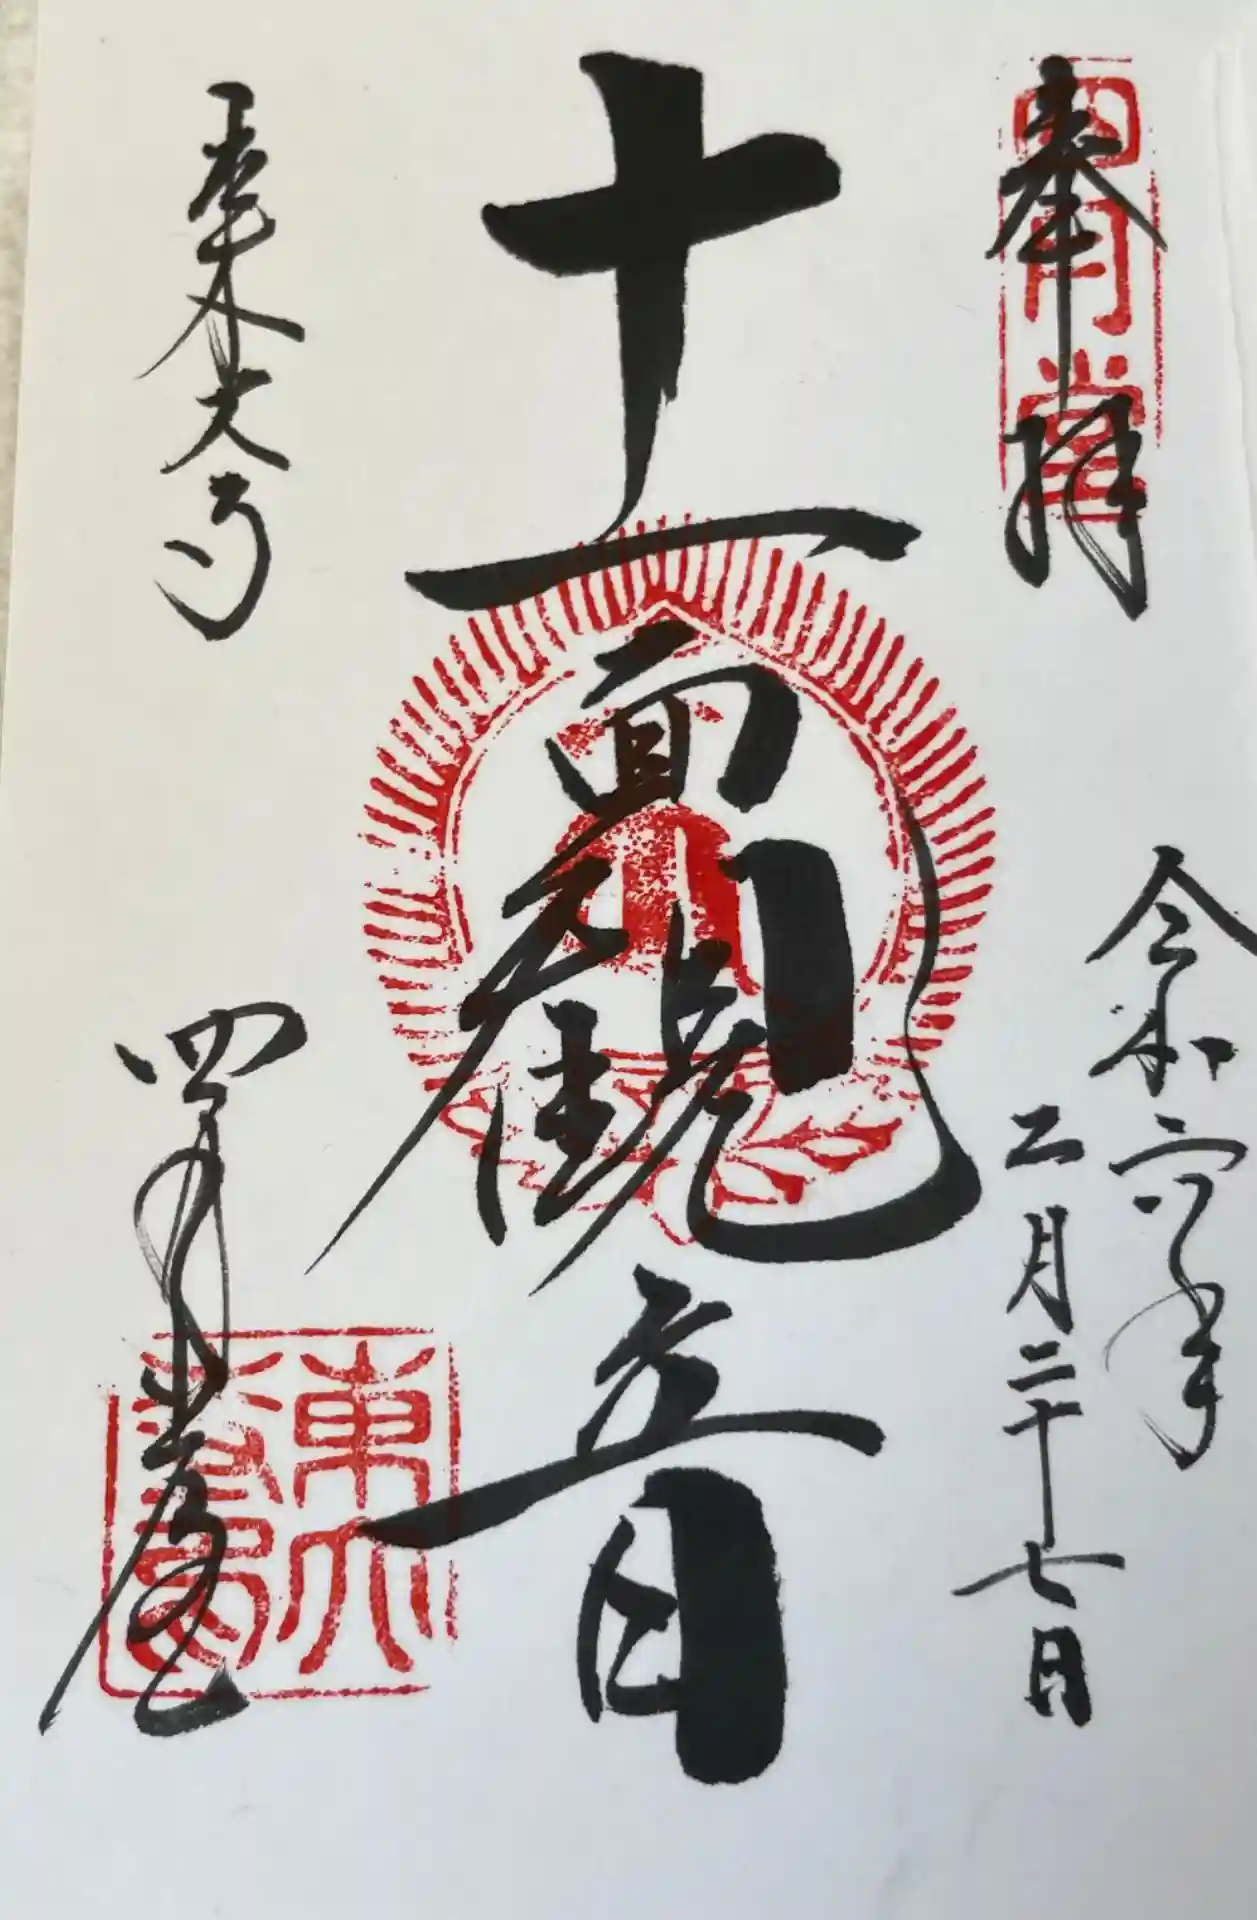 奉拝
四月堂
令和六年
二月二十七日
十一面観音
東大寺
四月堂
東大寺印